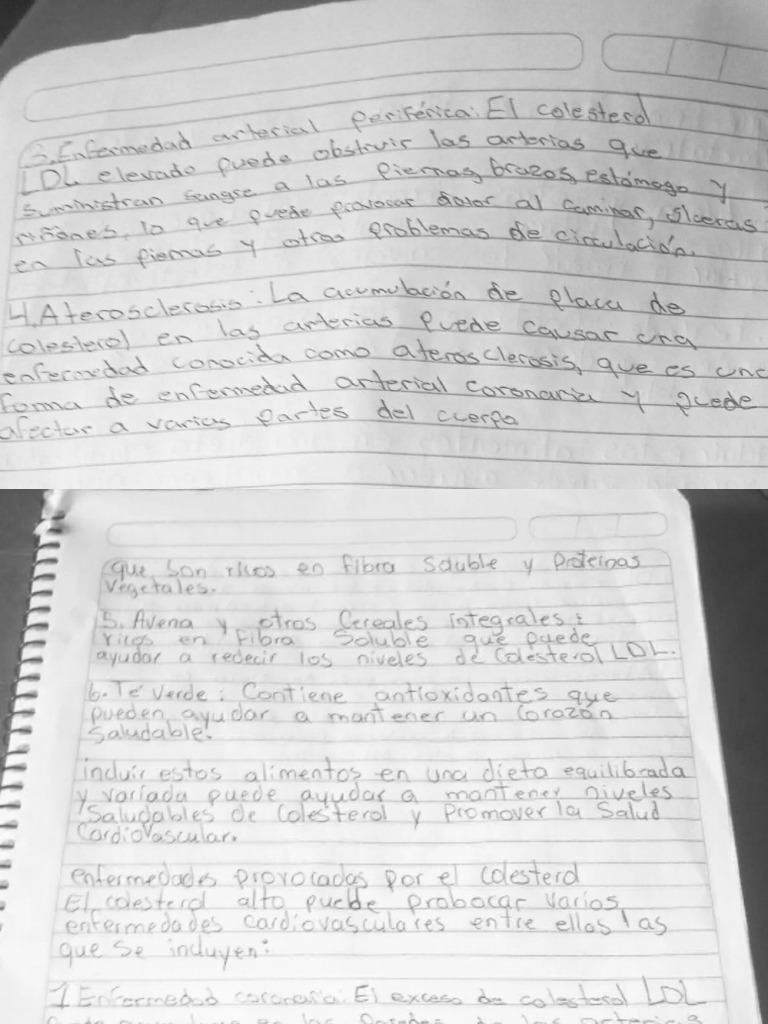 3. Enfermedad arterial periférica: El colesterol
LDL elevado puede obstruir las arterias que
suministran sangre a las piernas, brazos, estómago y
riñones, lo que puede provocar dolor al caminar, úlceras
en las piernas y otros problemas de circulación.
4. Aterosclerosis: La acumulación de placa de
colesterol en las arterias puede causar una
enfermedad conocida como aterosclerosis, que es una
forma de enfermedad arterial coronaria y puede
afectar a varias partes del cuerpo
que son ricos en fibra soluble y proteinas
vegetales.
5. Avena y otros Cereales integrales:
ricos en Fibra Soluble que puede
ayudar a redecir los niveles de Colesterol LDL.
6. Té Verde: Contiene antioxidantes que
pueden ayudar a mantener un Corazón
Saludable.
incluir estos alimentos en una dieta equilibrada
y variada puede ayudar a mantener niveles
Saludables de Colesterol y Promover la Salud
CardioVascular.
enfermedades provocadas por el colesterol
El colesterol alto puede probocar varios
enfermedades cardiovasculares entre ellos las
que se incluyen:
1 Enfermedad coronaria: El exceso de colesterol LDL
en las paredes de las arterias